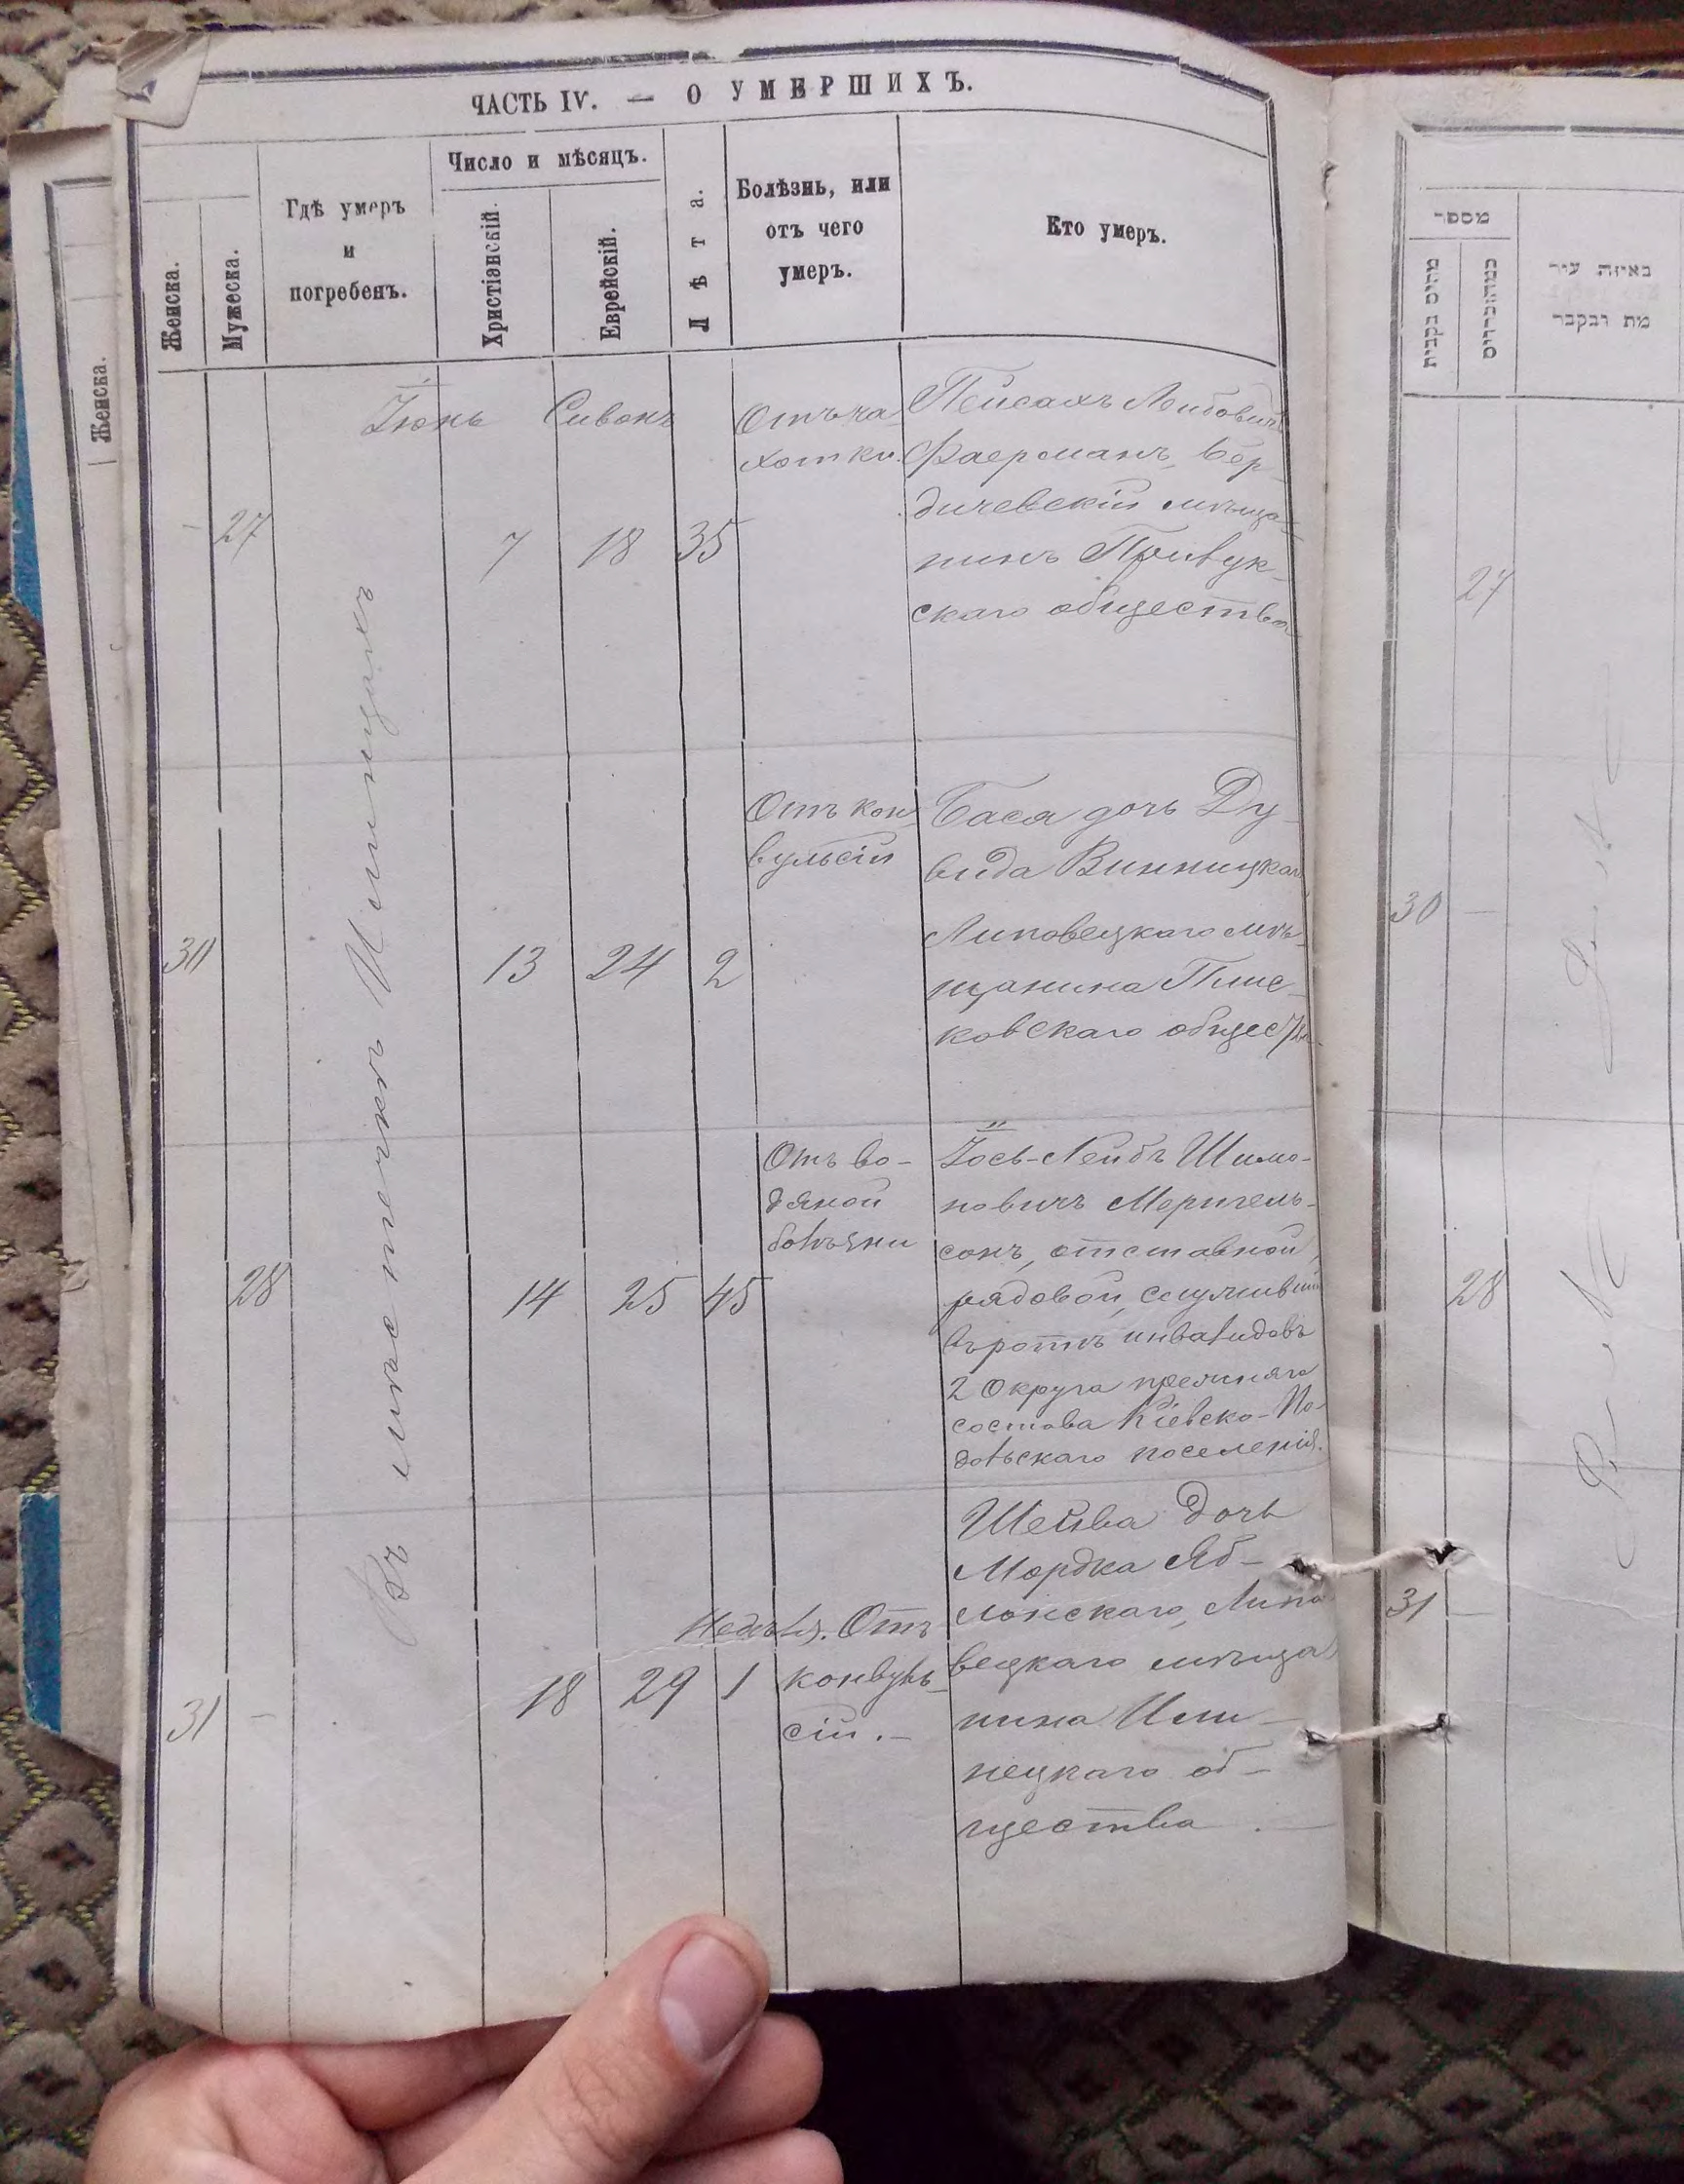 ЧАСТЬ IV. — О УМЕРШИХЪ.
Женска.
Мужеска.
Гдѣ умеръ
и
погребенъ.
Число и мѣсяцъ.
Христіанскій.
Еврейскій.
Лѣта.
Болѣзнь, или
отъ чего
умеръ.
Кто умеръ.
Женска.
Въ мѣстечкѣ Ильинцахъ
Іюнь Сивонъ
- 27
7 18 35
Отъ ча-
хотки.
Пейсахъ Лейбовичъ
Фаерманъ, Бер-
дичевскій мѣща-
нинъ
скаго общества
30
13 24 2
Отъ кон-
вульсіи
Бася дочь Ду-
вида Винницкаго
Липовецкаго мѣ-
щанина Плис-
ковскаго общест
28
14 25 45
Отъ во-
дяной
болѣзни
Іось-Лейбъ Шимо-
новичъ
сонъ, отставной
рядовой, служившій
въ ротѣ инвалидовъ
2 Округа прежняго
состава Кіевско-По-
дольскаго поселенія.
31 -
18 29 1
Недѣля. Отъ
конвуль-
сіи.-
Шейва дочь
Мордка Яб-
лонскаго, Липо
вецкаго мѣща
нина Иль-
нецкаго об-
щества.
מספר
באיזה עיר
מת ונקבר
27
30 —
28
31 —